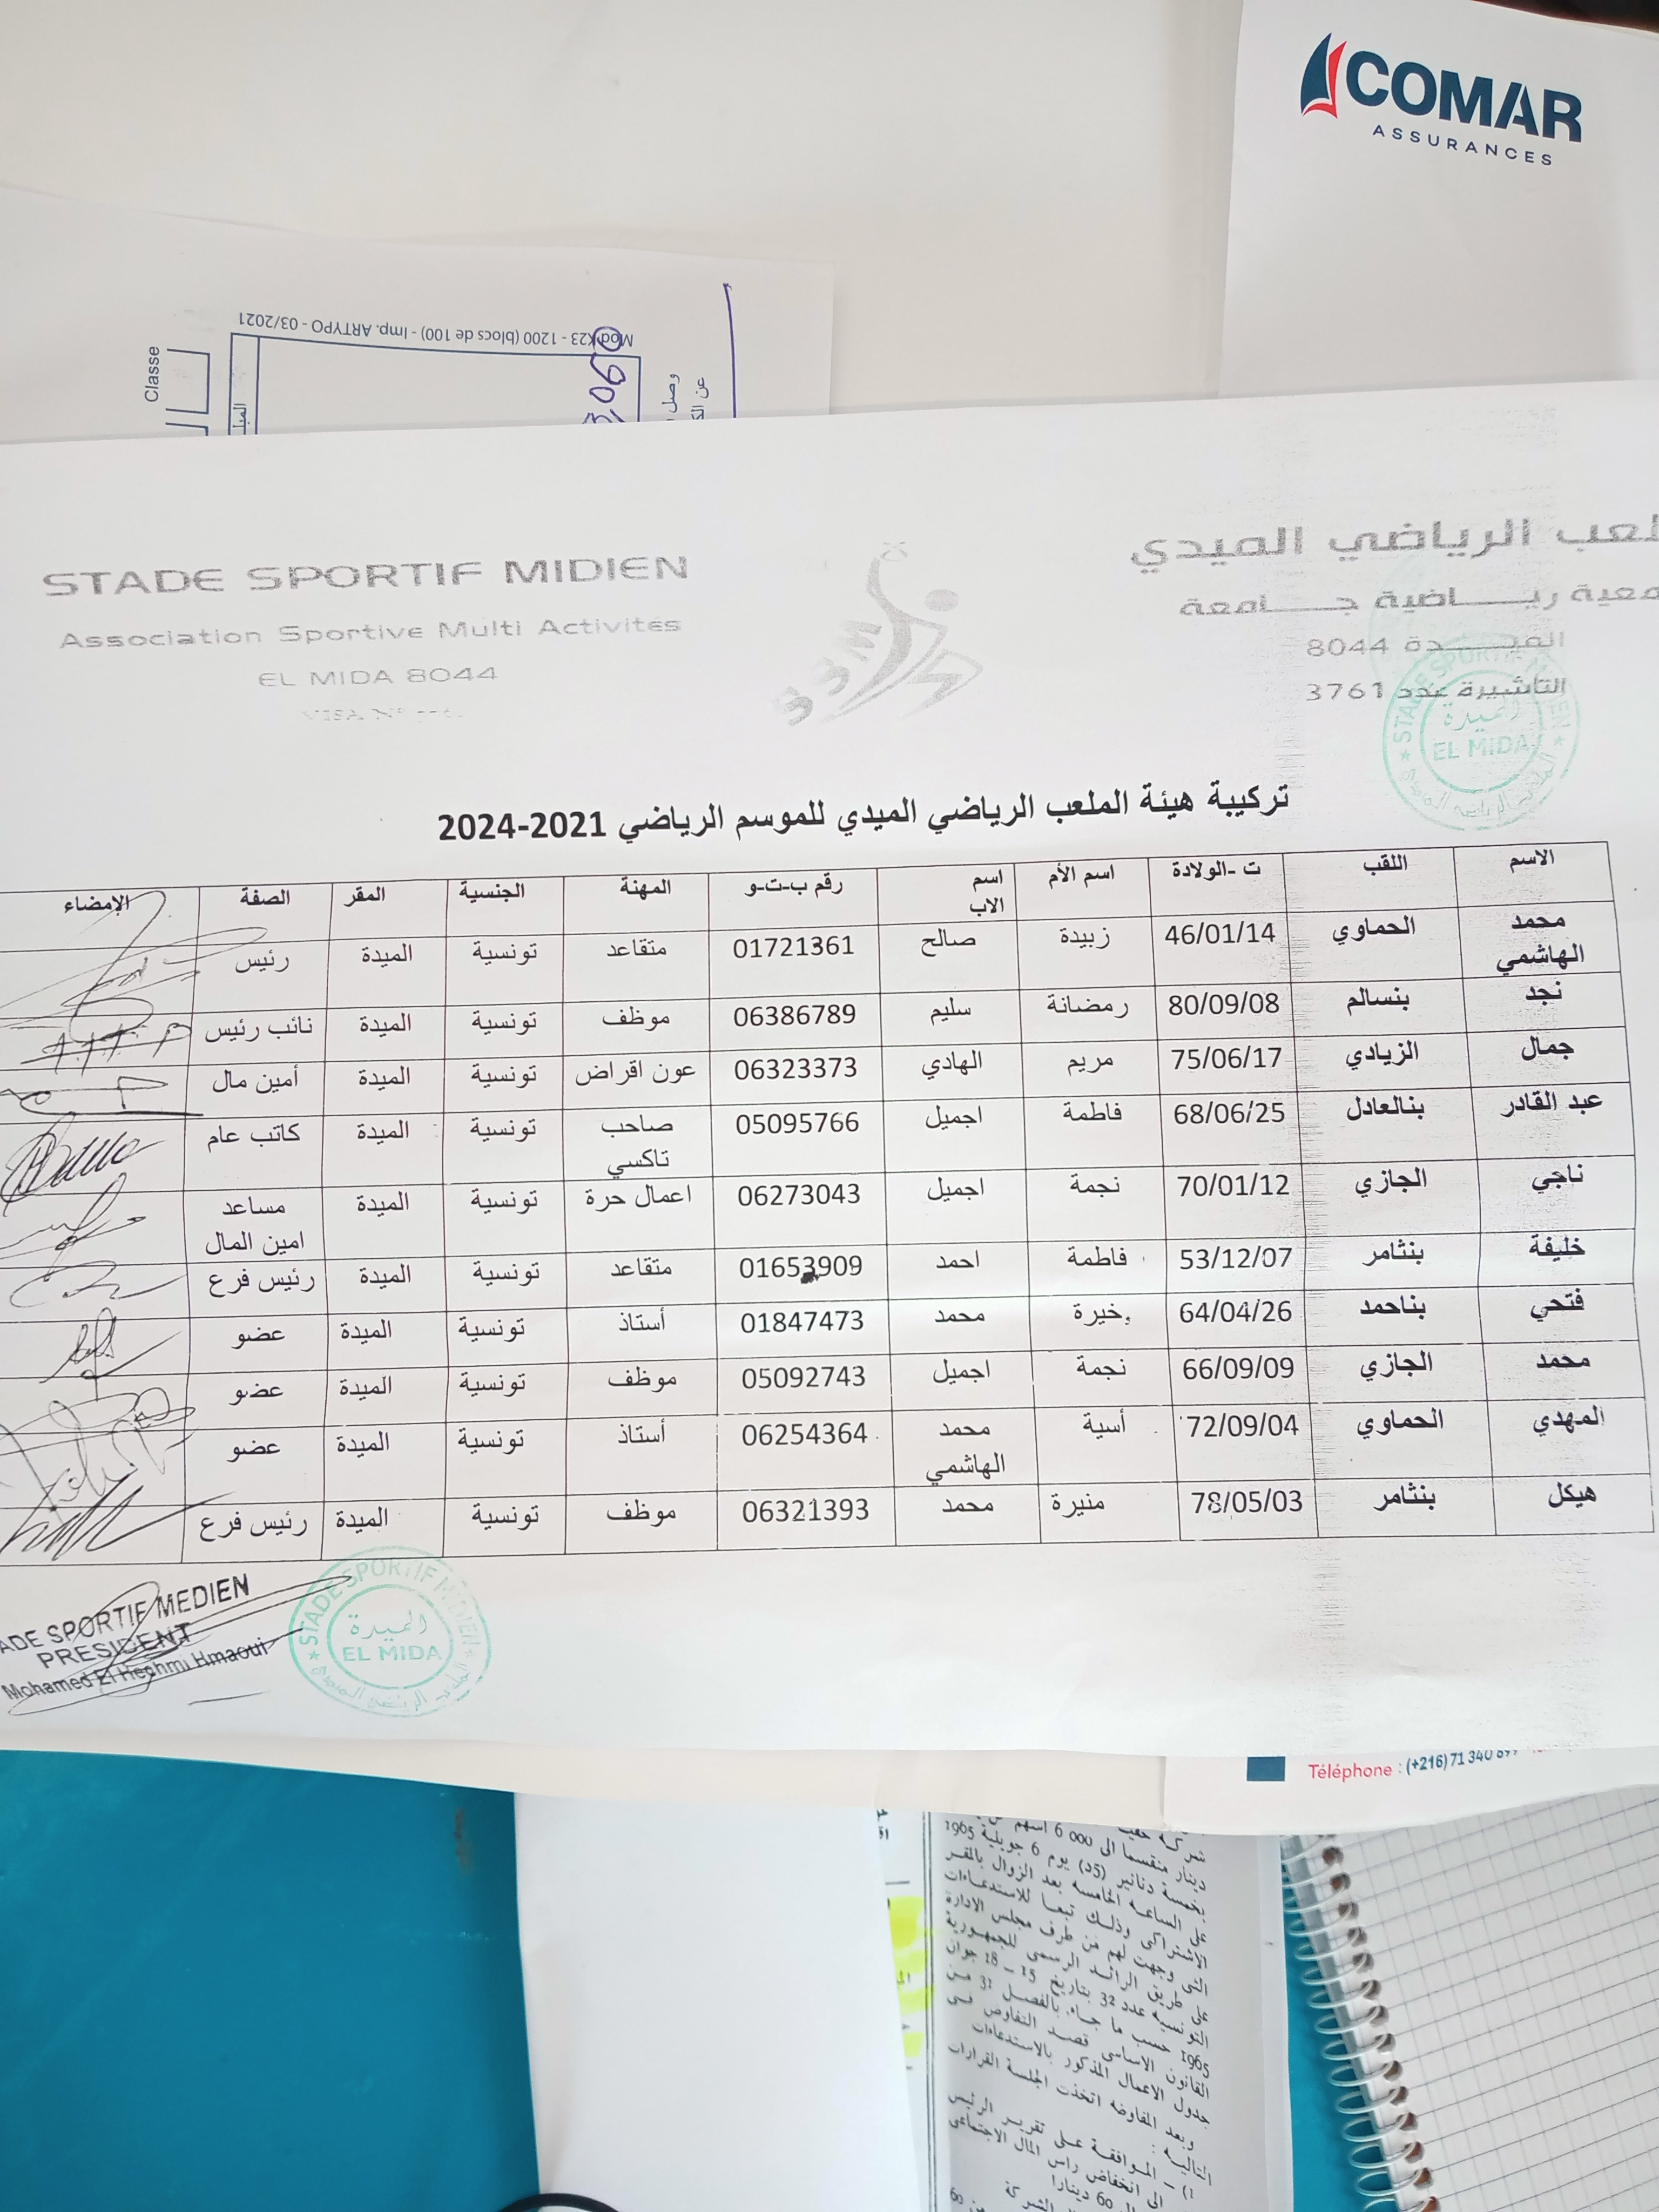 COMAR
ASSURANCES
Mod K23 - 1200 (blocs de 100) - Imp. ARTYPO - 03/2021
Classe
وصل
STADE SPORTIF MIDIEN
Association Sportive Multi Activités
EL MIDA 8044
لعب الرياضي الميدي
معية رياضية جامعة
الميدة 8044
التأشيرة عدد 3761
SSM
STADE SPORTIF MIDIEN
الميدة
EL MIDA
تركيبة هيئة الملعب الرياضي الميدي للموسم الرياضي 2021-2024
الاسم اللقب ت -الولادة اسم الأم اسم الاب رقم ب-ت-و المهنة الجنسية المقر الصفة الإمضاء
محمد الهاشمي الحماوي 46/01/14 زبيدة صالح 01721361 متقاعد تونسية الميدة رئيس
نجد بنسالم 80/09/08 رمضانة سليم 06386789 موظف تونسية الميدة نائب رئيس
جمال الزيادي 75/06/17 مريم الهادي 06323373 عون اقراض تونسية الميدة أمين مال
عبد القادر بنالعادل 68/06/25 فاطمة اجميل 05095766 صاحب تاكسي تونسية الميدة كاتب عام
ناجي الجازي 70/01/12 نجمة اجميل 06273043 اعمال حرة تونسية الميدة مساعد امين المال
خليفة بنثامر 53/12/07 فاطمة احمد 01653909 متقاعد تونسية الميدة رئيس فرع
فتحي بناحمد 64/04/26 خيرة محمد 01847473 أستاذ تونسية الميدة عضو
محمد الجازي 66/09/09 نجمة اجميل 05092743 موظف تونسية الميدة عضو
المهدي الحماوي 72/09/04 أسية محمد الهاشمي 06254364 أستاذ تونسية الميدة عضو
هيكل بنثامر 78/05/03 منيرة محمد 06321393 موظف تونسية الميدة رئيس فرع
ADE SPORTIF MEDIEN
PRESIDENT
Mohamed El Hechmi Hmaoui
STADE SPORTIF MIDIEN
الميدة
EL MIDA
الملعب الرياضي الميدي
Téléphone : (+216) 71 340
دينار منقسما الى 000 6 اسهم
بخمسة دنانير (5د) يوم 6 جويلية 1965
على الساعة الخامسة بعد الزوال بالمقر
الاشتراكى وذلك تبعا للاستدعاءات
التى وجهت لهم من طرف مجلس الادارة
على طريق الرائد الرسمى للجمهورية
التونسية عدد 32 بتاريخ 15 – 18 جوان
1965 حسب ما جاء بالفصل 31 من
القانون الاساسى قصد التفاوض فى
جدول الاعمال المذكور بالاستدعاءات
وبعد المفاوضة اتخذت الجلسة القرارات
التالية :
1) – الموافقة على تقرير الرئيس
الى انخفاض راس المال الاجتماعى
60 دينارا